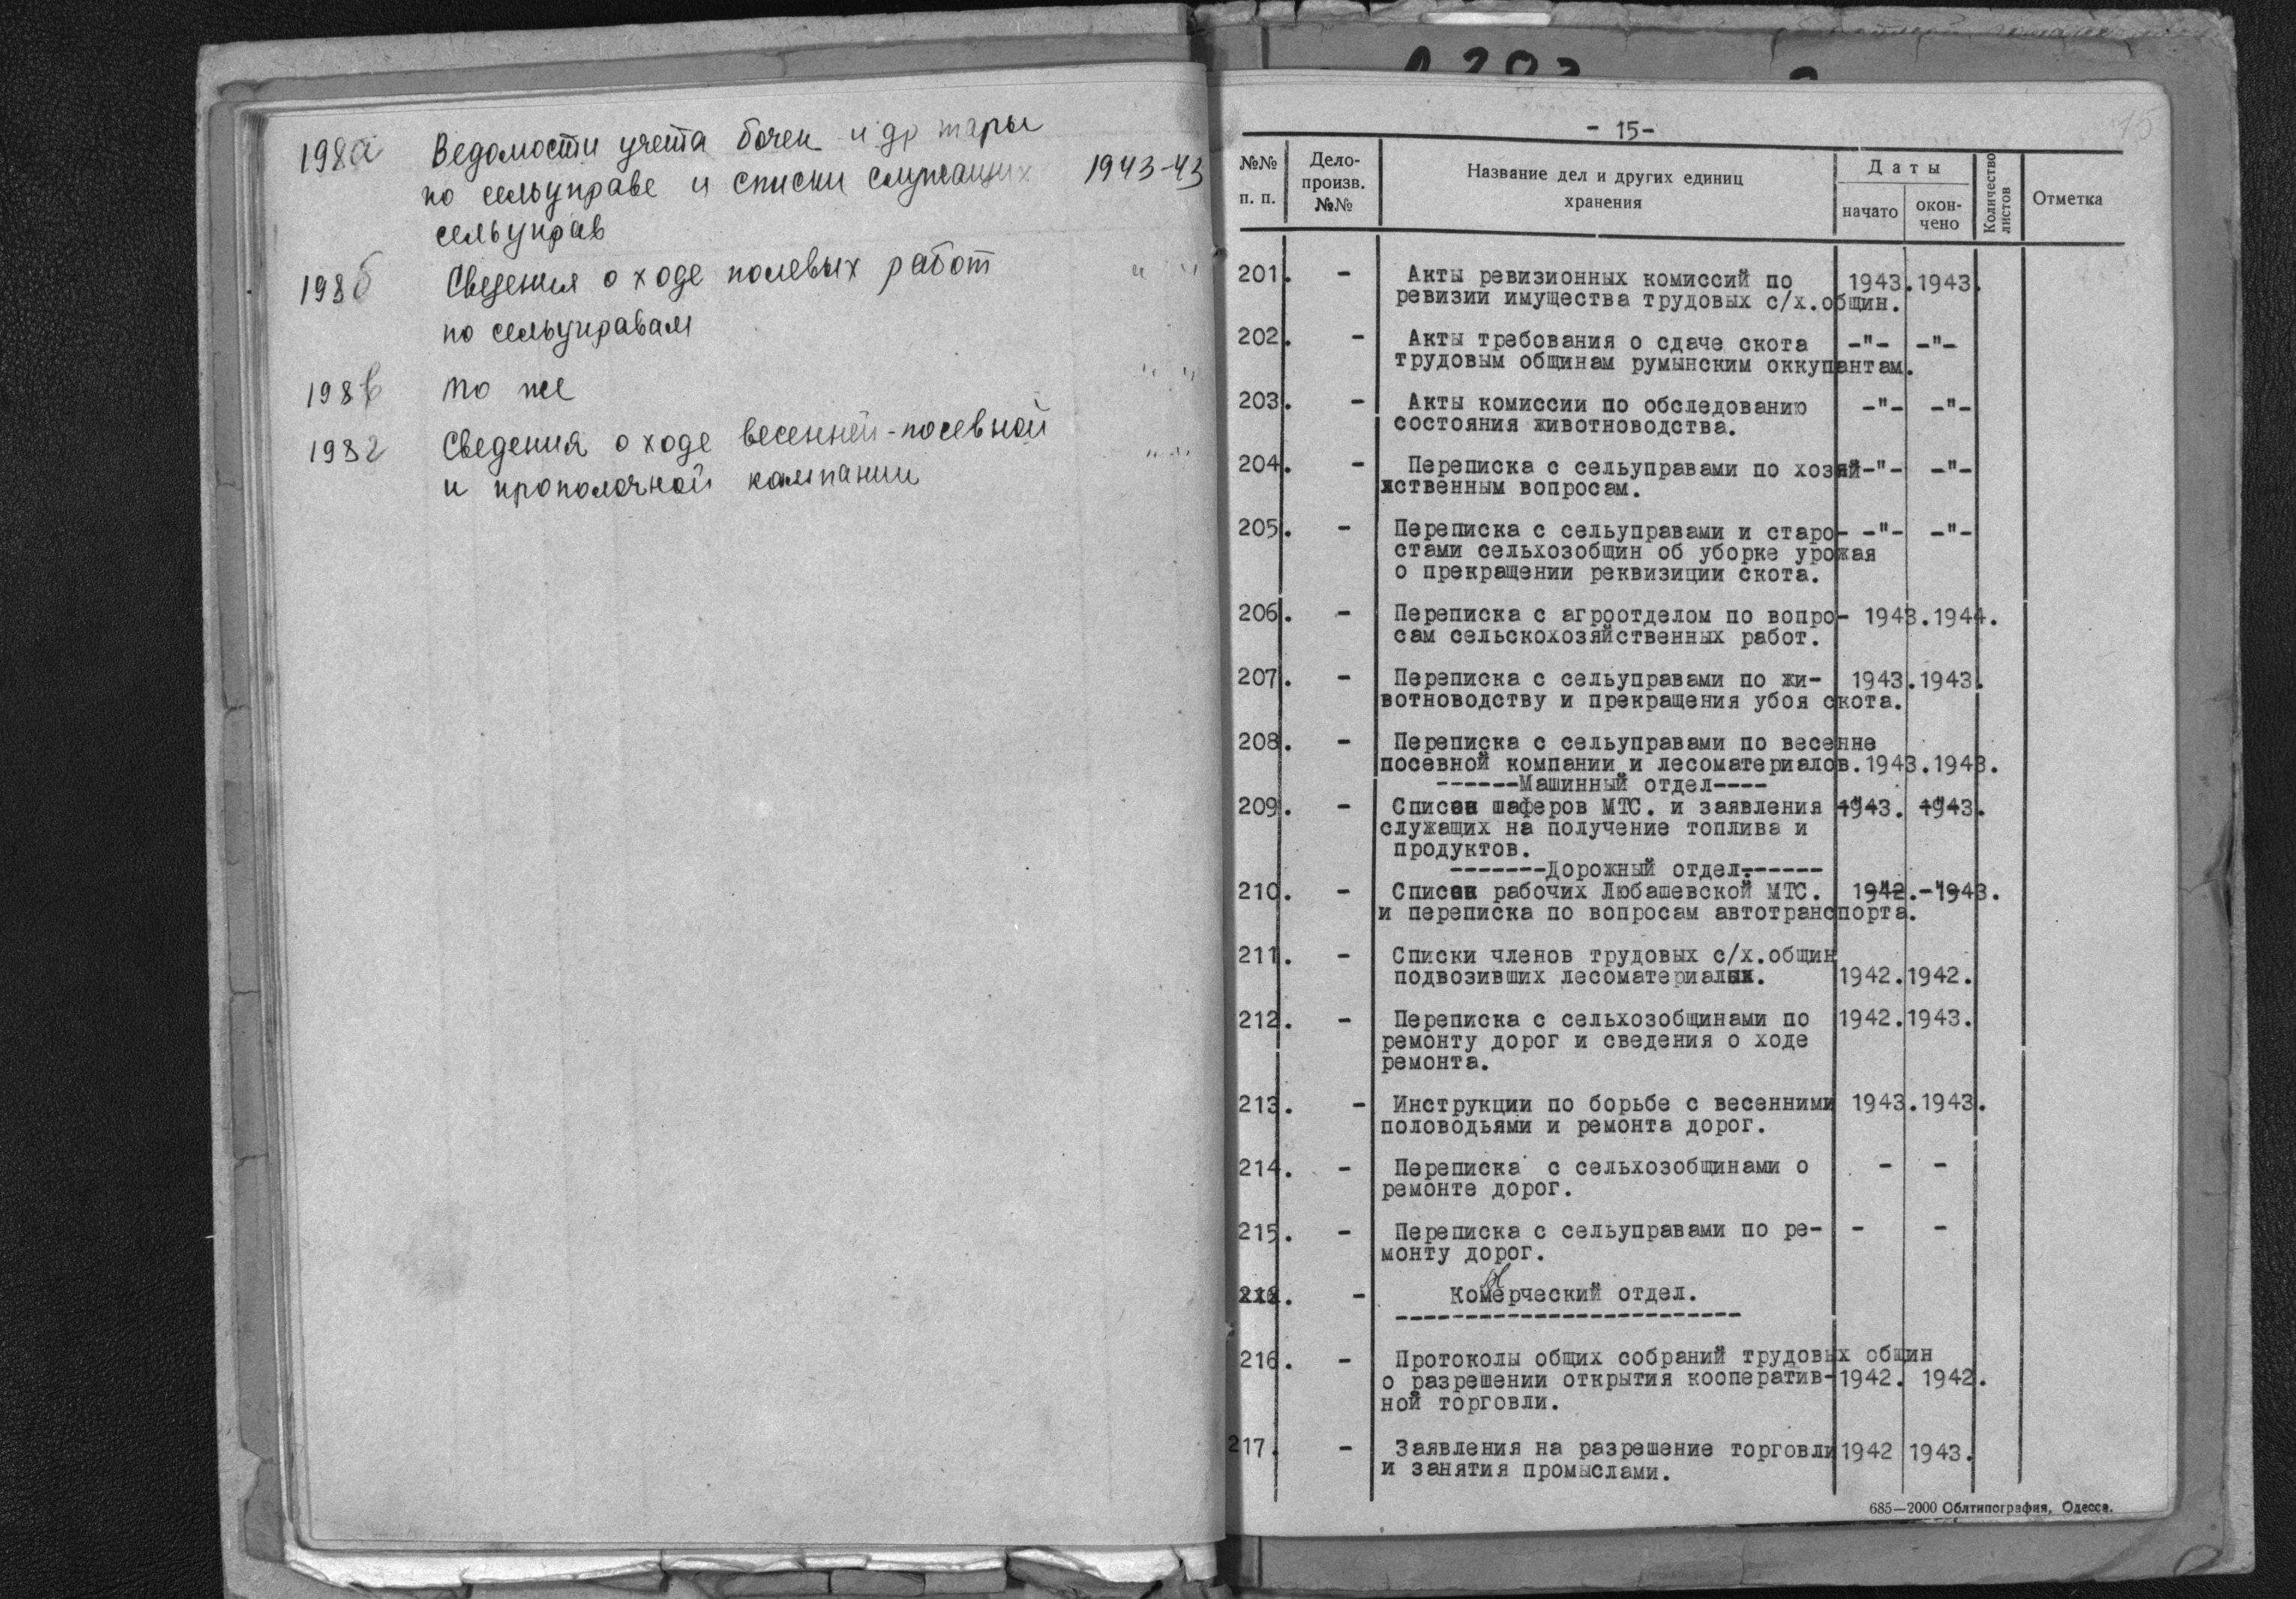 198а Ведомости учета бочек и др тары
по сельуправе и списки служащих 1943-43
сельуправ
198б Сведения о ходе полевых работ " "
по сельуправам
198в то же " "
198г Сведения о ходе весенней-посевной " "
и прополочной кампании
15
- 15-
№№ п. п. Дело-произв. №№ Название дел и других единиц хранения Даты начато окон-чено Количество листов Отметка
201. - Акты ревизионных комиссий по 1943.1943.
ревизии имущества трудовых с/х.общин.
202. - Акты требования о сдаче скота -"- -"-
трудовым общинам румынским оккупантам.
203. - Акты комиссии по обследованию -"- -"-
состояния животноводства.
204. - Переписка с сельуправами по хозяй-"- -"-
ственным вопросам.
205. - Переписка с сельуправами и старо- -"- -"-
стами сельхозобщин об уборке урожая
о прекращении реквизиции скота.
206. - Переписка с агроотделом по вопро- 1943.1944.
сам сельскохозяйственных работ.
207. - Переписка с сельуправами по жи- 1943.1943.
вотноводству и прекращения убоя скота.
208. - Переписка с сельуправами по весенне
посевной компании и лесоматериалов.1943.1943.
------Машинный отдел----
209. - Список шаферов МТС. и заявления 1943. 1943.
служащих на получение топлива и
продуктов.
-------Дорожный отдел.------
210. - Список рабочих Любашевской МТС. 1942.-1943.
и переписка по вопросам автотранспорта.
211. - Списки членов трудовых с/х.общин
подвозивших лесоматериалы. 1942.1942.
212. - Переписка с сельхозобщинами по 1942.1943.
ремонту дорог и сведения о ходе
ремонта.
213. - Инструкции по борьбе с весенними 1943.1943.
половодьями и ремонта дорог.
214. - Переписка с сельхозобщинами о - -
ремонте дорог.
215. - Переписка с сельуправами по ре- - -
монту дорог.
216. - Комерческий отдел.
-------------------------
216. - Протоколы общих собраний трудовых общин
о разрешении открытия кооператив-1942. 1942.
ной торговли.
217. - Заявления на разрешение торговли 1942 1943.
и занятия промыслами.
685—2000 Облтипография, Одесса.